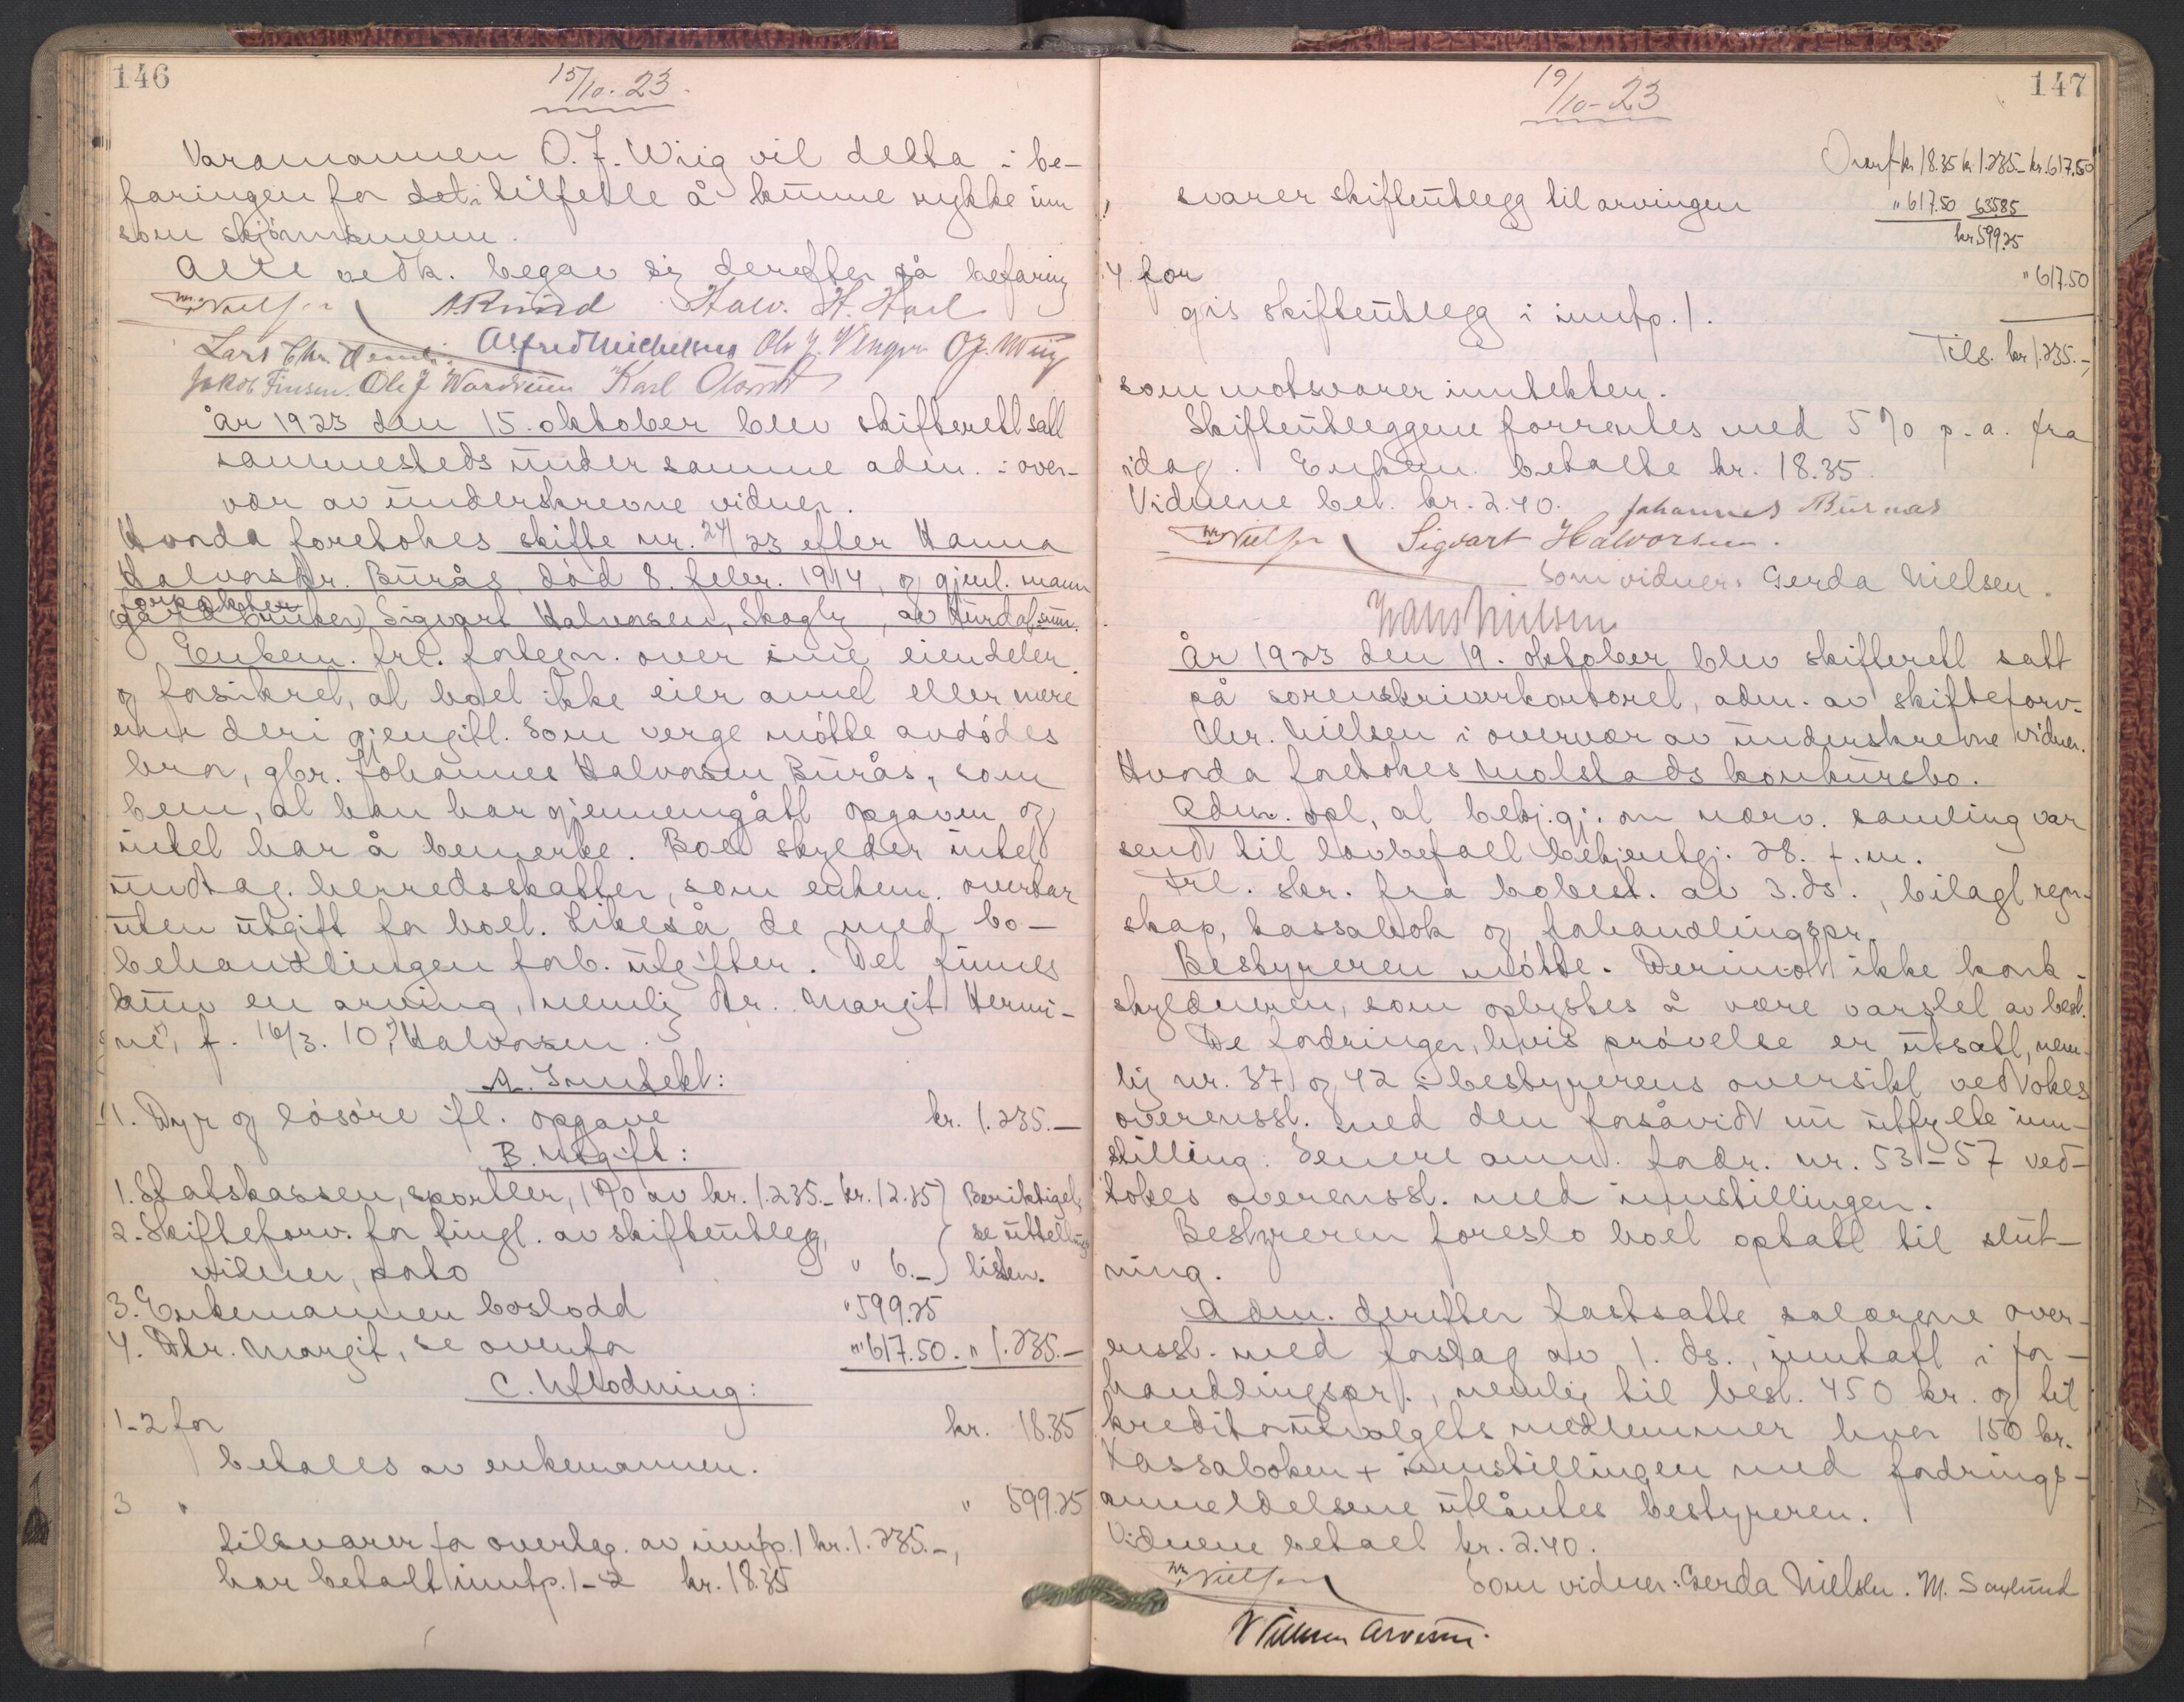 146
15/10-23.
Varamannen O. J. Wiig vil delta i be-
faringen for det tilfelle å kunne rykke inn
som skjønnsmenn.
Alle vedk. begav sig derefter på befaring
Chr. Nielsen A. Ruud Halv. H. Hasl
Lars Chr. Alfred Michelsen Ole J. O. J. Wiig
Jakob Finsen. Ole J. Karl
År 1923 den 15. oktober blev skifterett satt
sammesteds under samme adm. i over-
vær av underskrevne vidner.
Hvorda foretokes skifte nr. 24/23 efter Hanna
Halvorsdtr. Burås, død 8. febr. 1914, og gjenl. mann
forpakter
(gårdbruker) Sigvart Halvorsen, Skogly, av Hurdal s.
Enkem. frl. fortegn. over sine eiendeler
og forsikret, at boet ikke eier annet eller mere
enn deri gjengitt. Som verge møtte avdødes
bror, gbr. Johannes Halvorsen Burås, som
bem., at han har gjennemgått opgaven og
intet har å bemerke. Boet skylder intet
undtag. herredsskatter, som enkem. overtar
uten utgift for boet. Likeså de med bo-
behandlingen forb. utgifter. Det finnes
kun en arving, nemlig dtr. Margit Hermi-
ne, f. 16/3. 10, Halvorsen.
A. Inntekt:
1. Dyr og løsøre ifl. opgave kr. 1.235.—
B. Utgift:
1. Statskassen, sportler, 1% av kr. 1.235.– kr. 12.35 } Beriktiget,
2. Skifteforv. for tingl. av skifteutlegg, se uttellings
vidner, porto " 6.– } listen.
3. Enkemannen boslodd " 599.25
4. Dtr. Margit, se ovenfor " 617.50. " 1.235.—
C. Utlodning:
1-2 for kr. 18.35
betales av enkemannen.
3 " " 599.25
tilsvarer for overtag. av inntp. 1 kr. 1.235.–,
har betalt inntp. 1-2 kr. 18.35
19/10-23
147
Overf. kr 18.35 kr. 1.235.– kr. 617.50
svarer skifteutlegg til arvingen " 617.50 635.85
kr 599.25
4. for " 617.50
gis skifteutlegg i inntp. 1.
Tils. kr 1.235.–,
som motsvarer inntekten.
Skifteutleggene forrentes med 5% p. a. fra
idag. Enkem. betalte kr. 18.35.
Vidnene bet. kr. 2.40. Johannes Buraas
Chr. Nielsen Sigvart Halvorsen.
Som vidner: Gerda Nielsen.
Hans Nielsen
År 1923 den 19. oktober blev skifterett satt
på sorenskriverkontoret, adm. av skifteforv.
Chr. Nielsen i overvær av underskrevne vidner.
Hvorda foretokes Molstads konkursbo.
Adm. opl., at bekj.gj. om nærv. samling var
sendt til lovbefalt bekjentgj. 28. f. m.
Frl. skr. fra bobest. av 3. ds., bilagt regn-
skap, kassabok og forhandlingspr.
Bestyreren møtte. Derimot ikke konk.
skyldneren, som oplystes å være varslet av best.
De fordringer, hvis prøvelse er utsatt, nem-
lig nr. 37 og 42 i bestyrerens oversikt vedtokes
overensst. med den forsåvidt nu utfylte inn-
stilling. Senere anm. fordr. nr. 53-57 ved-
tokes overensst. med innstillingen.
Bestyreren foreslo boet optatt til slut-
ning.
Adm. derefter fastsatte salærene over-
ensst. med forslag av 1. ds., inntatt i for-
handlingspr., nemlig til best. 450 kr. og til
kreditorutvalgets medlemmer hver 150 kr.
Kassaboken + innstillingen med fordrings-
anmeldelsene utlåntes bestyreren.
Vidnene betalt kr. 2.40.
Chr. Nielsen Som vidner: Gerda Nielsen. M. Saxlund